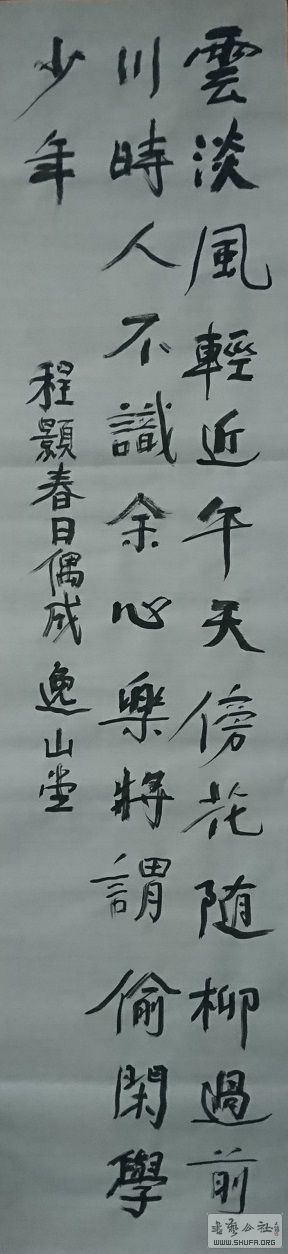 雲淡風輕近午天傍花随柳過前
川時人不識余心樂將謂偷閑學
少年
程顥春日偶成 逸山堂
書藝公社
WWW.SHUFA.ORG